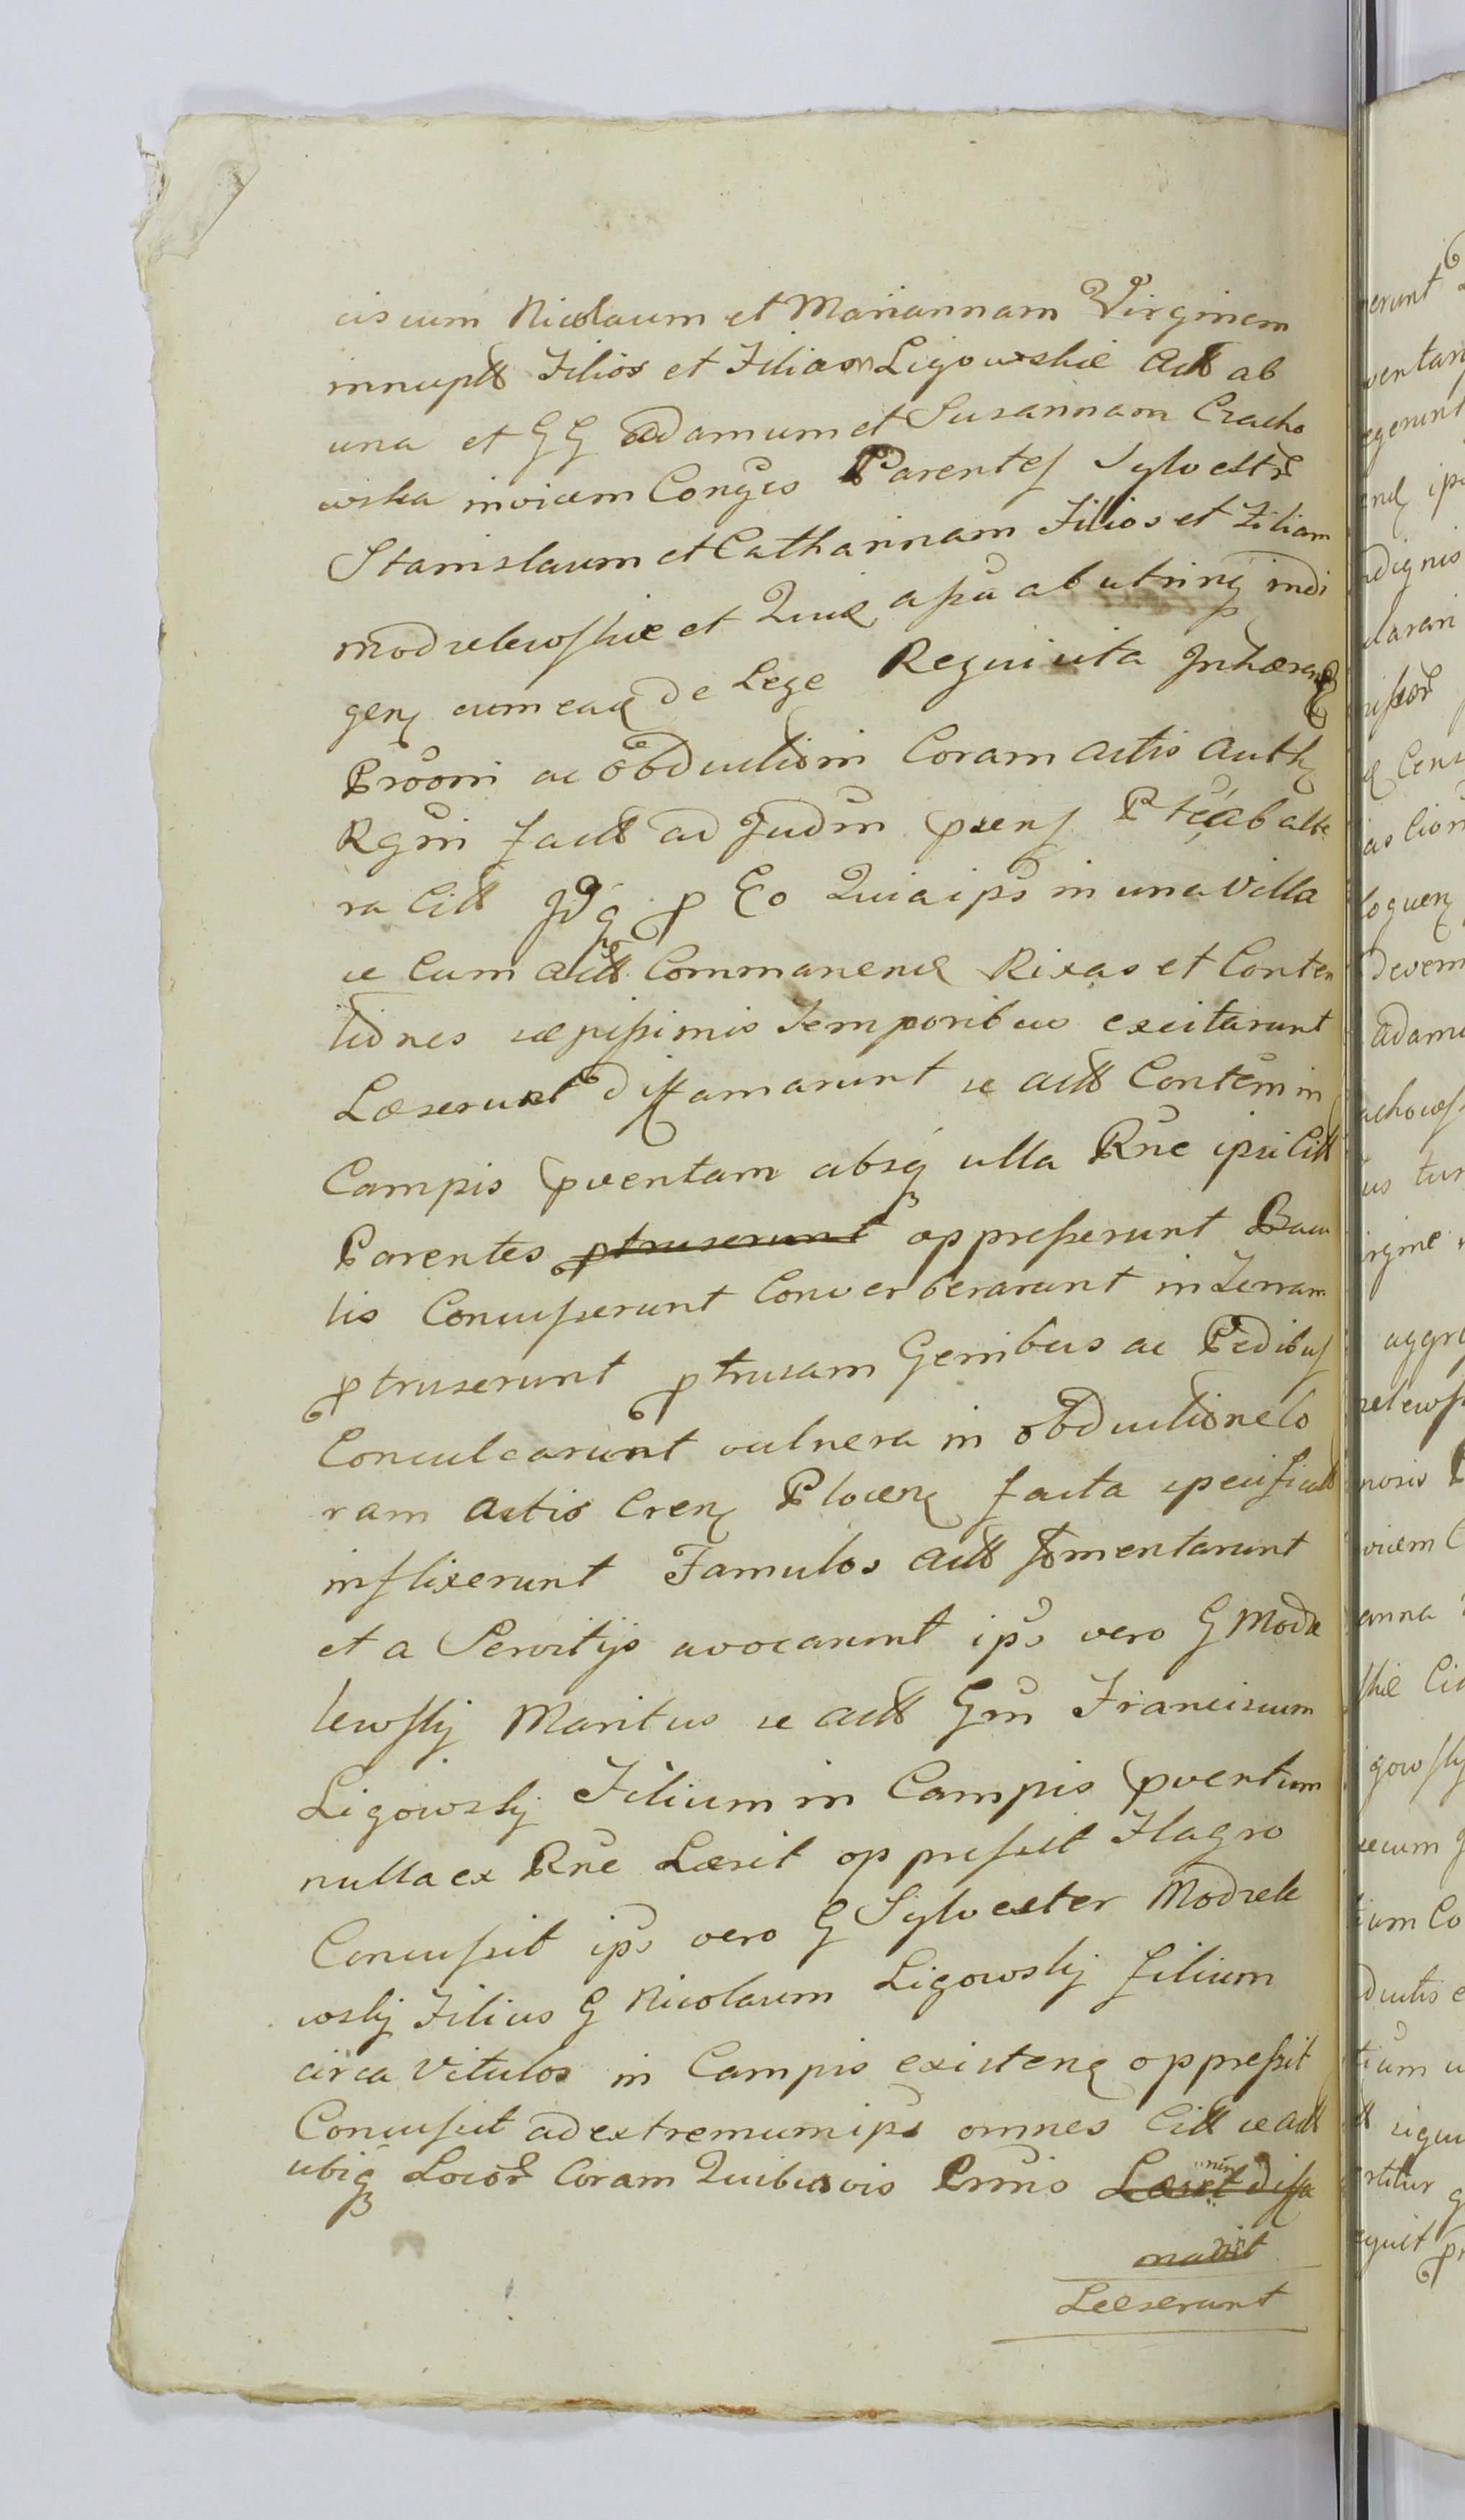 ciscum Nicolaum et Mariannam Virginem
innupt Filios et Filiam Ligowskie Act ab
una et GG Adamum et Susannam Czacho
wska invicem Conges Parentes Sylvestr
Stanislaum et Catharinam Filios et Filiam
Modzelewskie et Quia apu ab utrinq indi
gen cum eaq de Lege Requisita Inhæren
Prooni ac Obductioni Coram Actis Auth
Rgni fact ad Judm psens Pte ab alte
ra Citt Idq p Eo Quia ips in una Villa
se Cum Act Commanen Rixas et Conten
tiones sæpissimis Temporibus excitarunt
Læserunt diffamarunt se Act Contem in
Campis pventam absq ulla Rne ipsi Citt
Parentes ptruserunt oppresserunt Bacu
lis Concusserunt Converberarunt in Terram
ptruserunt ptrusam Genibus ac Pedibus
Conculcarunt vulnera in Obductione Co
ram Actis Cren Plocen facta specificatt
inflixerunt Famulos Act fomentarunt
et a Servitijs avocarunt ips vero G Modze
lewskj Maritus se Act Gm Franciscum
Ligowskj Filium in Campis pventum
nulla ex Rne Læsit oppressit Flagro
Concussit ips vero G Sylvester Modzele
wskj Filius G Nicolaum Ligowskj filium
circa Vitulos in Campis existen oppressit
Concussit ad extremum ips omnes Citt se Act
ubiq Locor Coram Quibusvis Prnis Læsit diffa
mavit
Læserunt